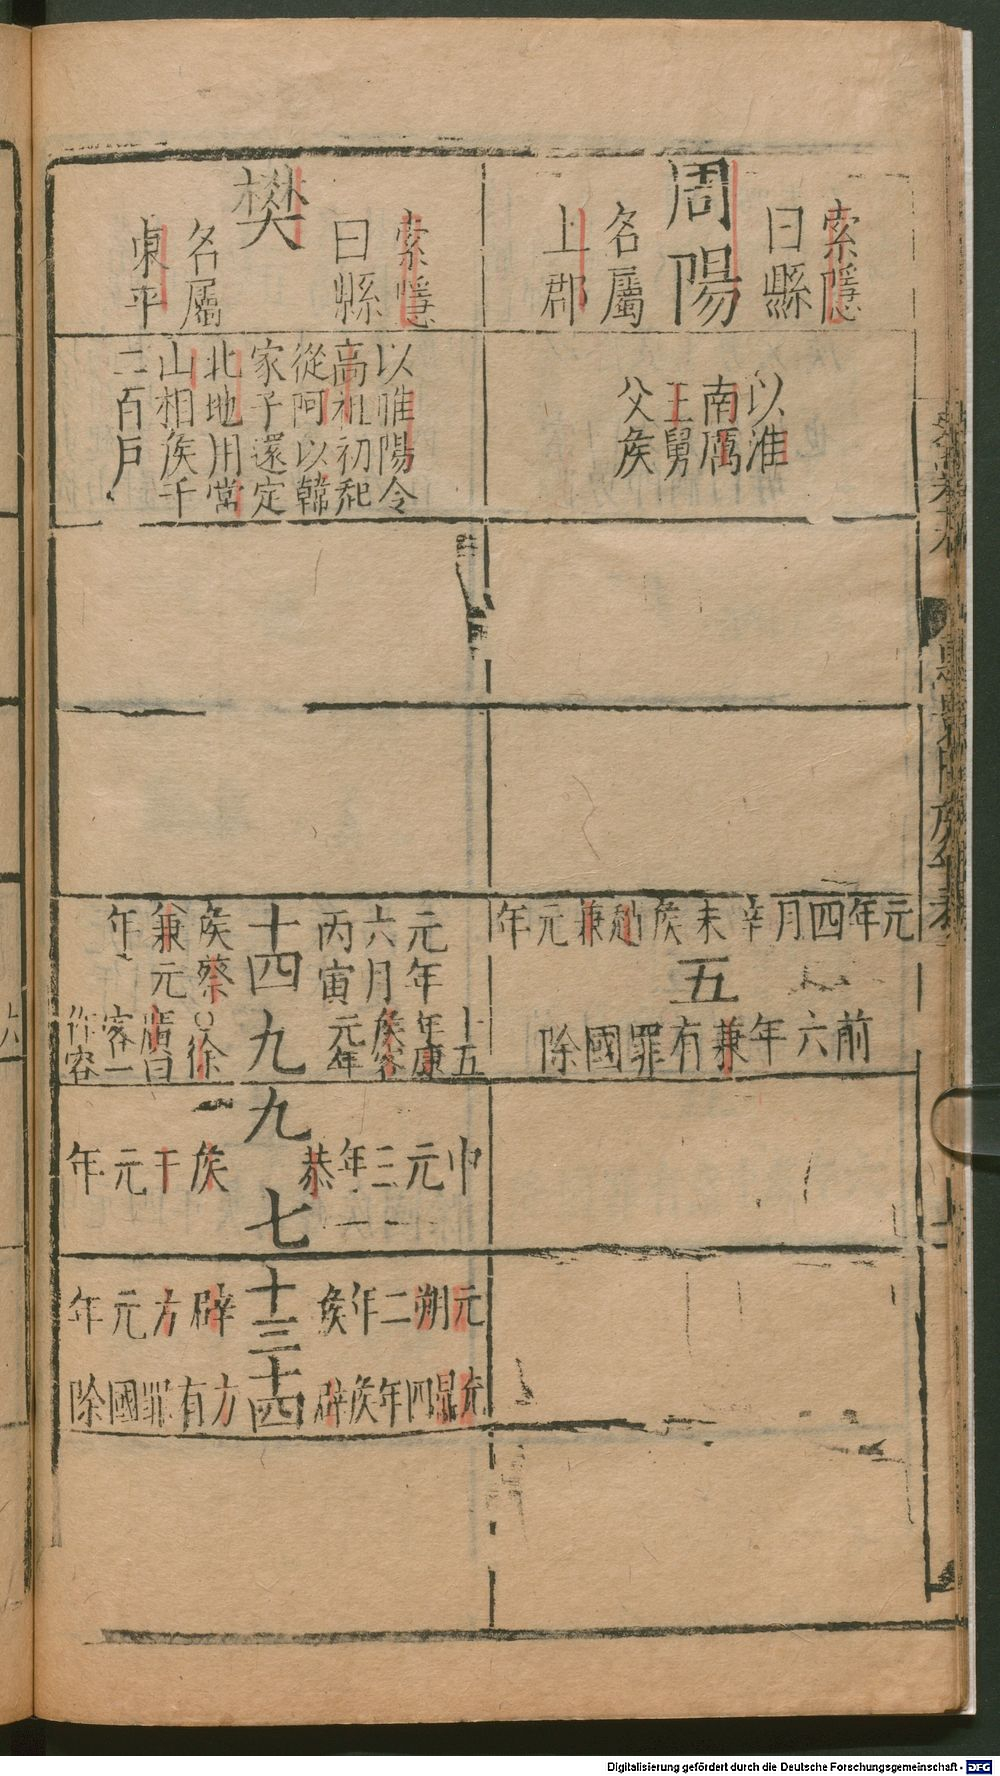 索隱
曰縣
周陽
名屬
上郡
以淮
南厲
王舅
父侯
元年四月辛未侯趙兼元年
五
前六年兼有罪國除
索隱
曰縣
樊
名屬
東平
以睢陽令
高祖初起
從阿以韓
家子還定
北地用常
山相侯千
二百戶
元年
六月
丙寅
十四
侯蔡
兼元
年
十五
年康
侯客
元年
九
○徐
廣曰
客一
作容
九
中元三年恭侯干元年
七
十三
元朔二年侯辟方元年
十四
元鼎四年侯辟方有罪國除
Digitalisierung gefördert durch die Deutsche Forschungsgemeinschaft - DFG